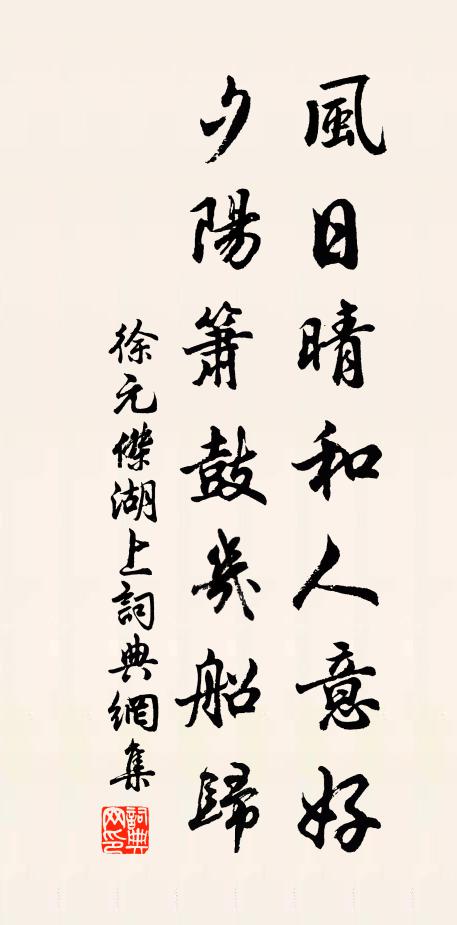 風日晴和人意好
夕陽簫鼓幾船歸
徐元傑湖上詞典網集
詞典網印